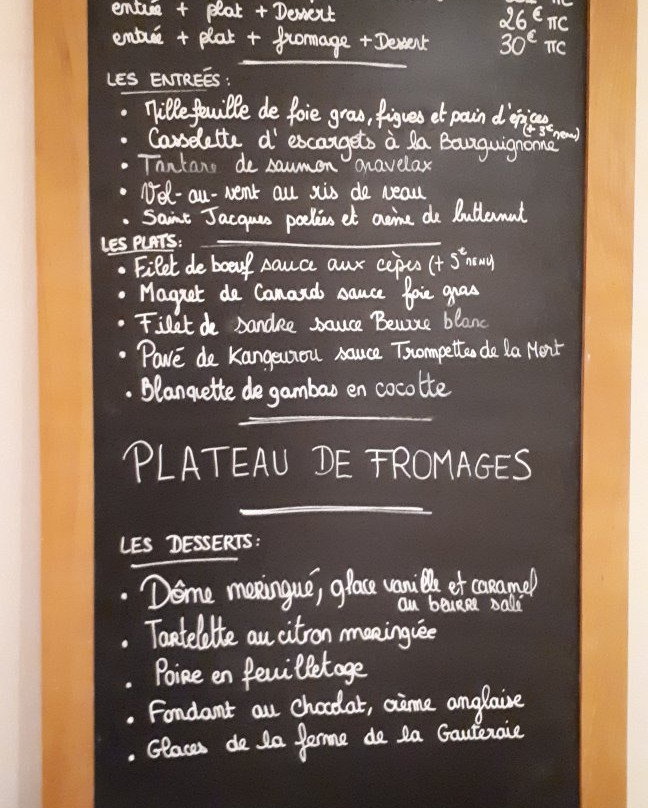 entrée + plat + Dessert 26 € TTC
entrée + plat + fromage + Dessert 30 € TTC
LES ENTREÉS:
• Millefeuille de foie gras, figues et pain d'épices
(+ 3€ menu)
• Cassolette d'escargots à la Bourguignonne
• Tartare de saumon gravelax
• Vol-au-vent au ris de veau
• Saint Jacques poelées et crème de butternut
LES PLATS:
• Filet de boeuf sauce aux cèpes (+ 5€ MENU)
• Magret de Canard sauce foie gras
• Filet de sandre sauce Beurre blanc
• Pavé de Kangourou sauce Trompettes de la Mort
• Blanquette de gambas en cocotte
PLATEAU DE FROMAGES
LES DESSERTS:
• Dôme meringué, glace vanille et caramel
au beurre salé
• Tartelette au citron meringiée
• Poire en feuilletage
• Fondant au chocolat, crème anglaise
• Glaces de la ferme de la Gauteraie